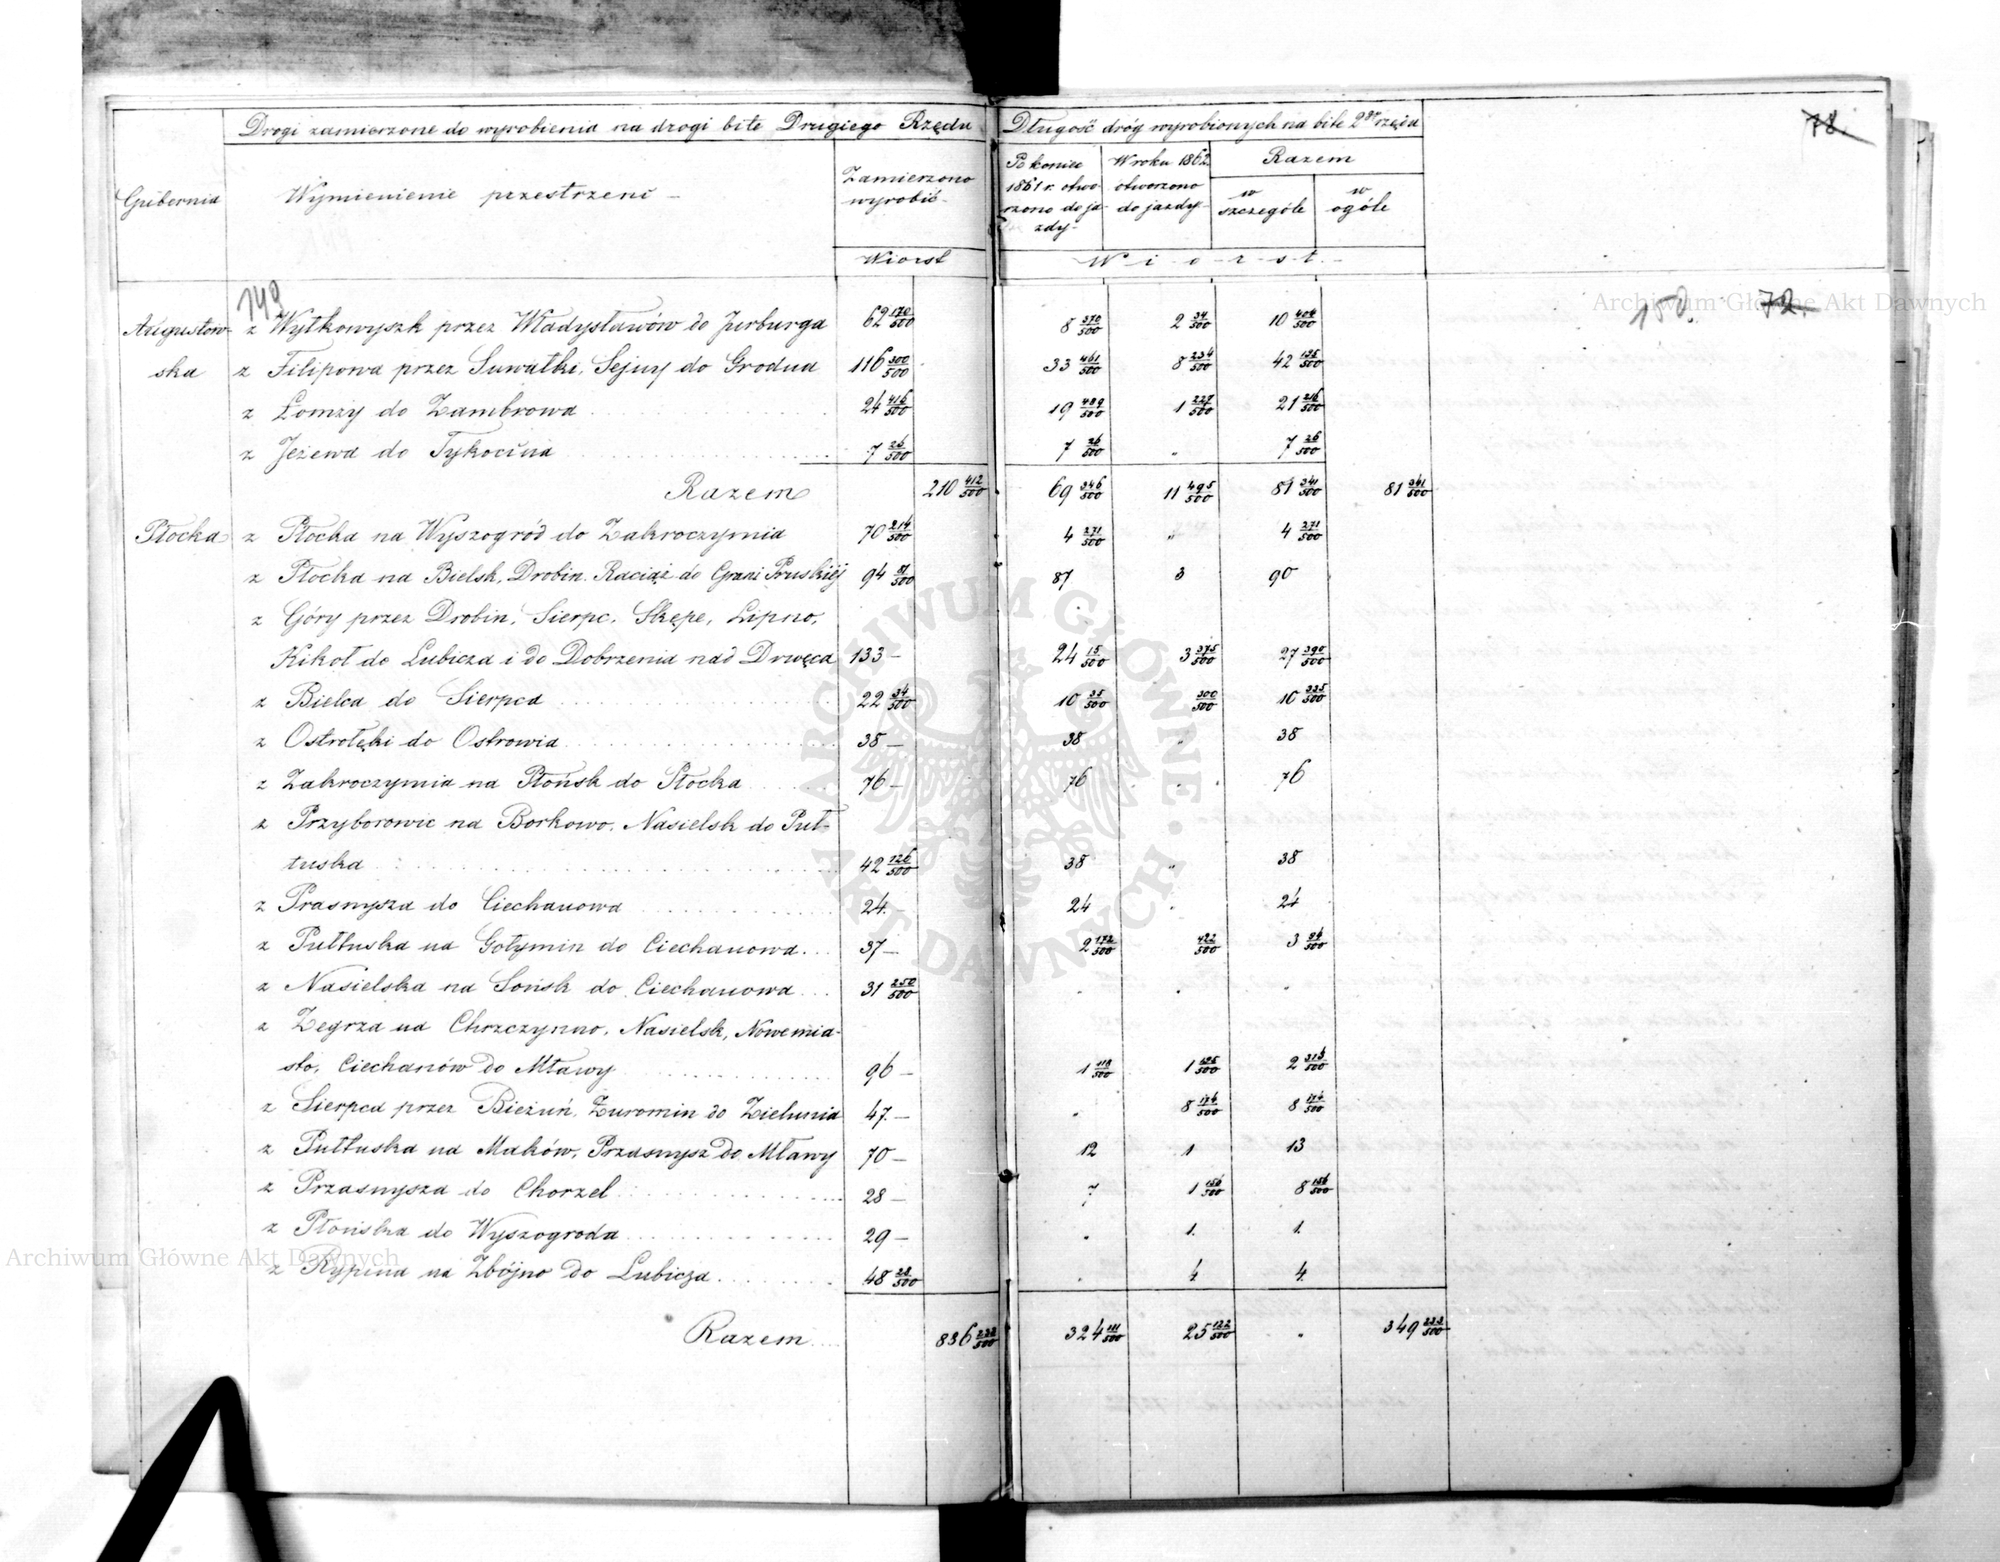 Drogi zamierzone do wyrobienia na drogi bite Drugiego Rzędu
Długość dróg wyrobionych na bite 2go rzędu
78.
Gubernia
Wymienienie przestrzeni –
Zamierzono wyrobić
Po koniec 1861 r. otworzono do jazdy
W roku 1862 otworzono do jazdy
Razem
w szczególe
w ogóle
Wiorst
Wiorst
149
150. 72.
Augustowska z Wyłkowyszk przez Władysławów do Jurburga 62 170/500 8 370/500 2 34/500 10 404/500
z Filipowa przez Suwałki, Sejny do Grodna 116 300/500 33 461/500 8 234/500 42 195/500
z Łomży do Zambrowa 24 416/500 19 489/500 1 227/500 21 216/500
z Jeżewa do Tykocina 7 26/500 7 26/500 " 7 26/500
Razem 210 412/500 69 346/500 11 495/500 81 341/500 81 341/500
Płocka z Płocka na Wyszogród do Zakroczymia 70 214/500 4 271/500 " 4 271/500
z Płocka na Bielsk, Drobin, Raciąż do Grani Pruskiéj 94 87 3 90
z Góry przez Drobin, Sierpc, Skępe, Lipno,
Kikoł do Lubicza i do Dobrzenia nad Drwęcą 133 – 24 15/500 3 375/500 27 390/500
z Bielca do Sierpca 22 34/500 10 35/500 300/500 10 335/500
z Ostrołęki do Ostrowia 38 – 38 " 38
z Zakroczymia na Płońsk do Płocka 76 – 76 . 76
z Przyborowic na Borkowo, Nasielsk do Puł-
tuska 42 126/500 38 " 38
z Prasnysza do Ciechanowa 24. 24 . 24
z Pułtuska na Gołymin do Ciechanowa 37 – 2 172/500 422/500 3 94/500
z Nasielska na Sońsk do Ciechanowa 31 250/500 . . .
z Zegrza na Chrzczynno, Nasielsk, Nowemia-
sto, Ciechanów do Mławy 96 – 1 118/500 1 195/500 2 313/500
z Sierpca przez Bieżuń, Żuromin do Zielunia 47. – . 8 174/500 8 174/500
z Pułtuska na Maków, Przasnysz do Mławy 70 – 12 1 13
z Przasnysza do Chorzel 28 – 7 1 156/500 8 156/500
z Płońska do Wyszogroda 29 – . 1. 1.
z Rypina na Zbójno do Lubicza 48 . 4 4.
Razem 886 222/500 324 111/500 25 122/500 . 349 233/500
Archiwum Główne Akt Dawnych
Archiwum Główne Akt Dawnych
ARCHIWUM GŁÓWNE AKT DAWNYCH